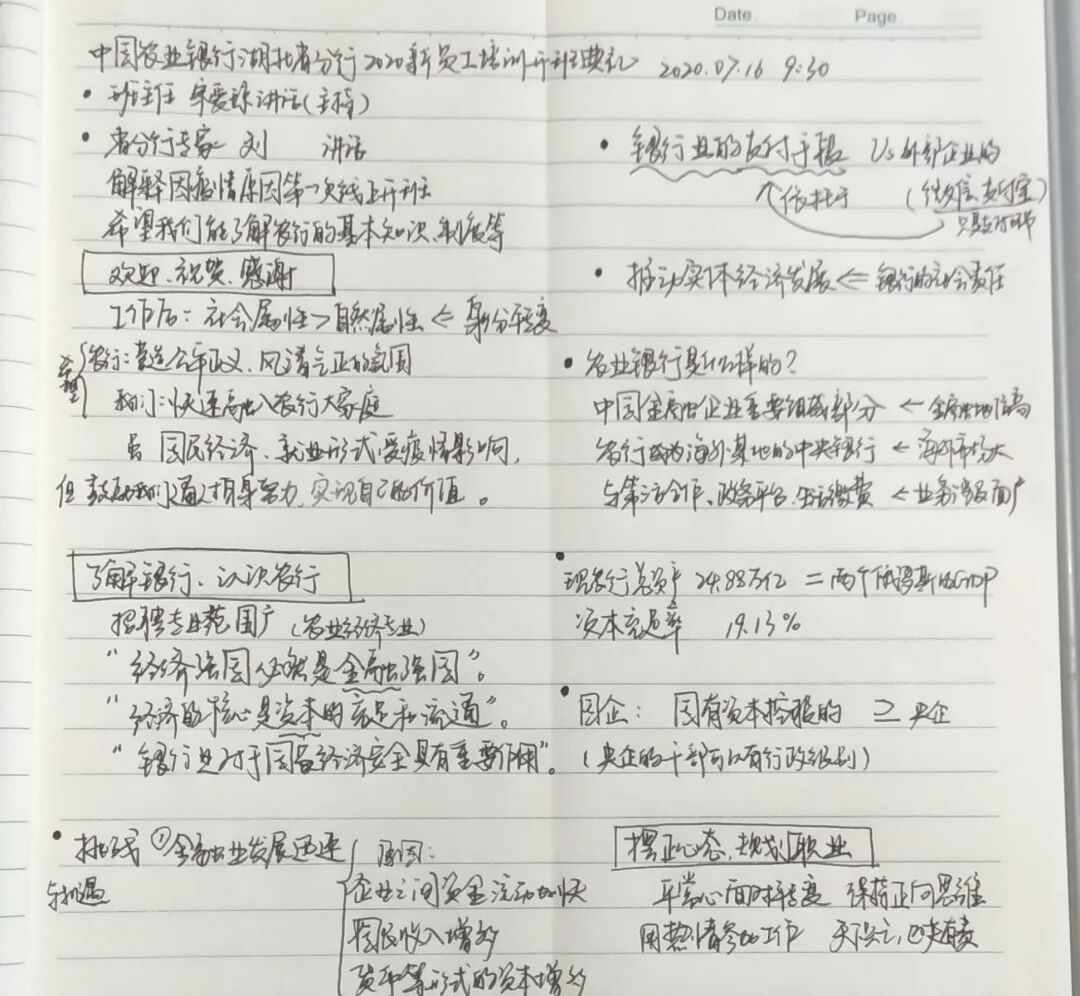 Date Page
中国农业银行湖北省分行2020新员工培训开班典礼 2020.07.16 9:30
• 班主任 讲话(主持)
• 省分行专家 刘 讲话
解释因疫情原因第一次线上开班
希望我们能了解农行的基本知识、制度等
欢迎、祝贺、感谢
工作后: 社会属性>自然属性 ← 身份转变
希望
农行:营造公平正义、风清气正的氛围
我们:快速融入农行大家庭
虽 国民经济、就业形式受疫情影响,
但 鼓励我们通过自身努力,实现自己的价值。
了解银行、认识农行
招聘专业范围广(农业经济专业)
“经济强国必然是金融强国”。
“经济的核心是资本的充足和流通”。
“银行业对于国家经济安全具有重要作用”。
• 挑战 ①金融业发展迅速
与机遇
原因:
企业之间资金流动加快
国民收入增多
货币等形式的资本增多
• 银行业的支付手段 Vs 外部企业的
依托于 (微信支付宝)
• 推动实体经济发展 ⇐ 银行的社会责任
• 农业银行是什么样的?
中国金融企业重要组成部分 ← 金融地位高
农行成为海外某地的中央银行 ← 海外市场大
与第三方合作、政务平台、生活缴费 ← 业务涉及面广
• 现农行总资产 24.88万亿 = 两个俄罗斯的GDP
资本充足率 19.13%
• 国企: 国有资本控股的 ⊇ 央企
(央企的干部可以有行政级别)
摆正心态,规划职业
平常心面对转变 保持正向思维
用热情参加工作